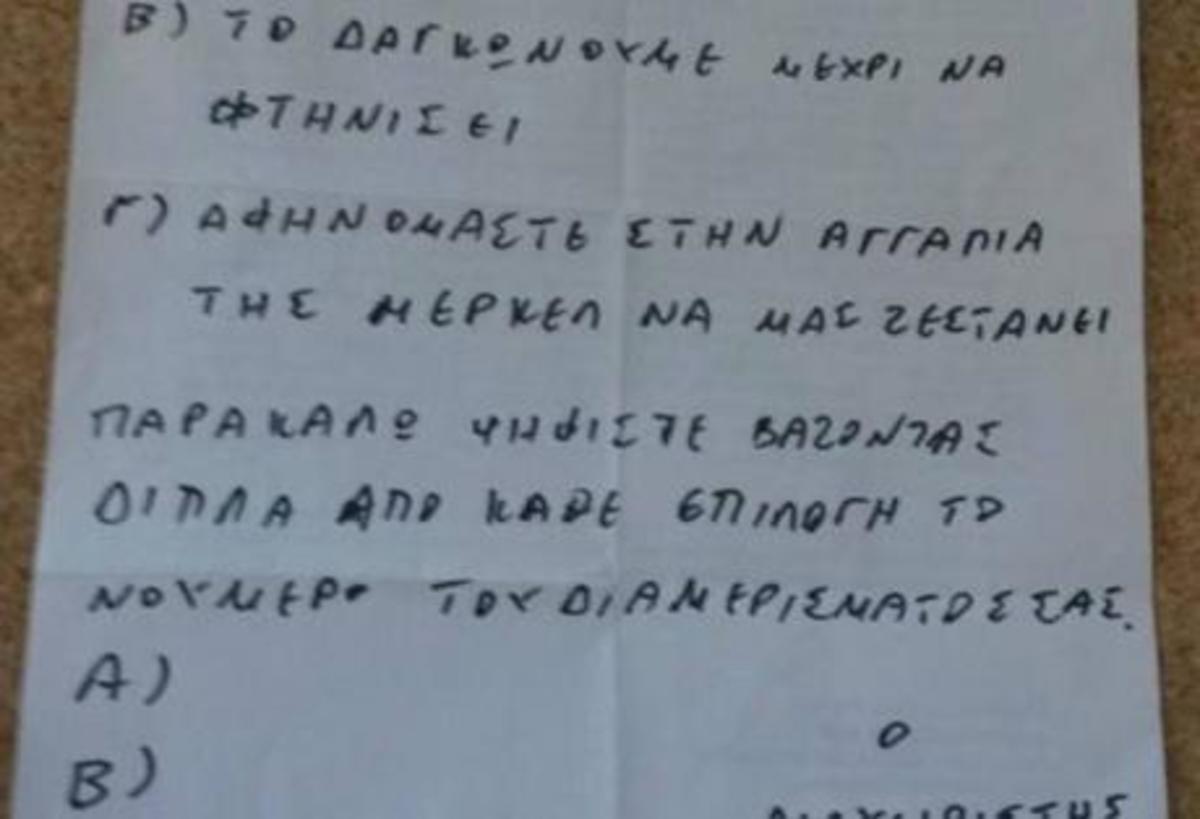 Β) ΤΟ ΔΑΓΚΩΝΟΥΜΕ ΜΕΧΡΙ ΝΑ
ΦΤΗΝΙΣΕΙ
Γ) ΑΦΗΝΟΜΑΣΤΕ ΣΤΗΝ ΑΓΓΑΛΙΑ
ΤΗΣ ΜΕΡΚΕΛ ΝΑ ΜΑΣ ΖΕΣΤΑΝΕΙ
ΠΑΡΑΚΑΛΩ ΨΗΦΙΣΤΕ ΒΑΖΟΝΤΑΣ
ΔΙΠΛΑ ΑΠΟ ΚΑΘΕ ΕΠΙΛΟΓΗ ΤΟ
ΝΟΥΜΕΡΟ ΤΟΥ ΔΙΑΜΕΡΙΣΜΑΤΟΣ ΣΑΣ.
Α)
Β)
Ο
ΔΙΑΧΕΙΡΙΣΤΗΣ